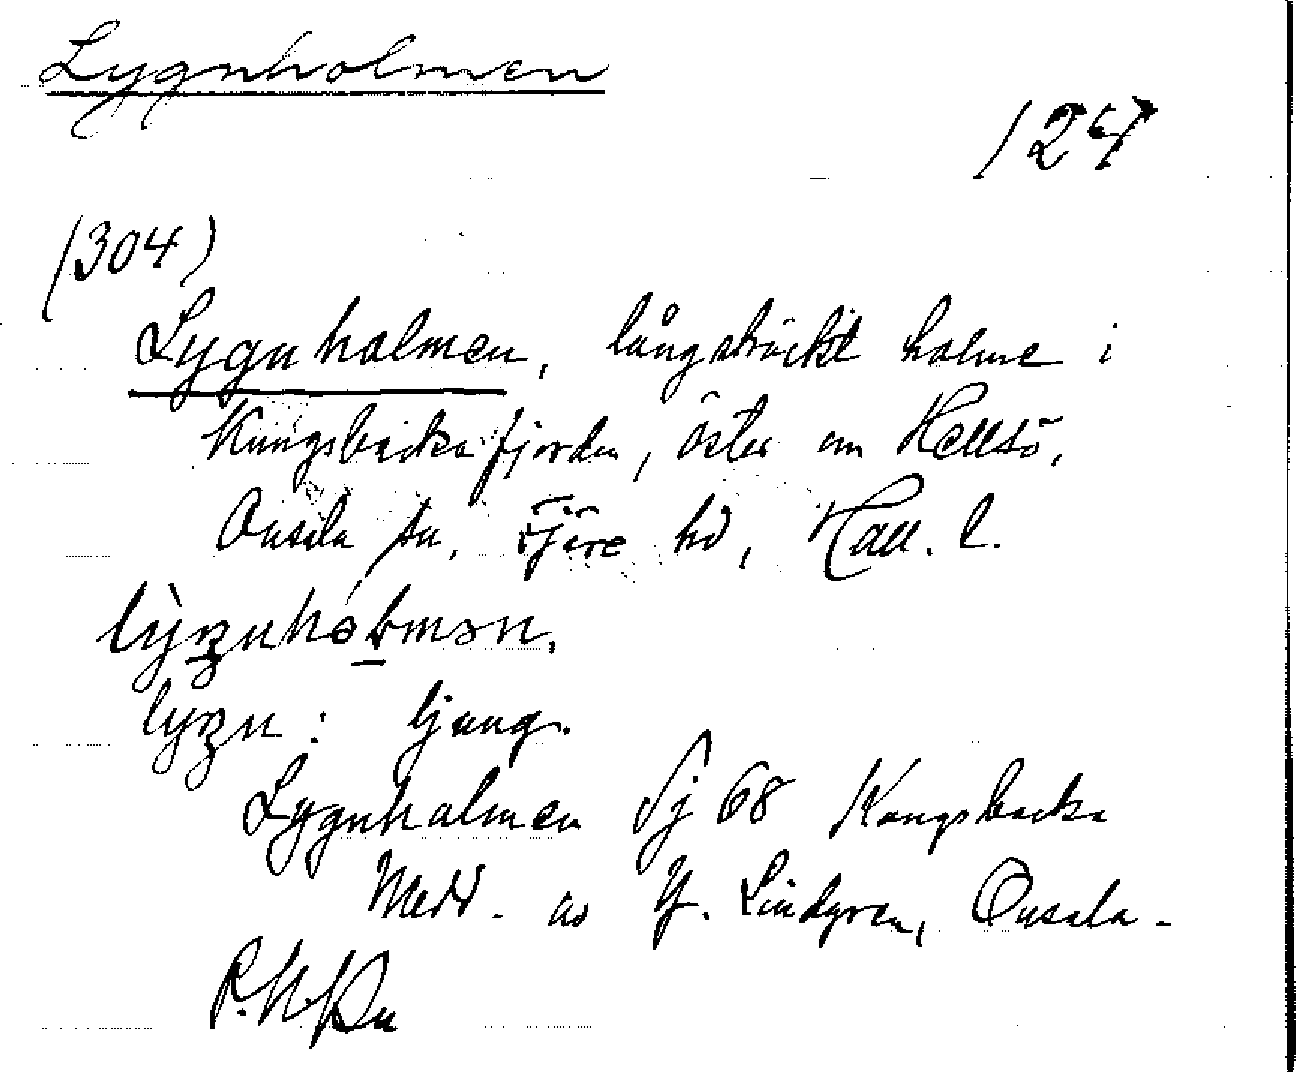 Lygnholmen
124
(304)
Lygnholmen, långsträckt holme i
Kungsbackafjorden, öster om Hellsö,
Onsala sn, Fjäre hd, Hall. l.
lyng: ljung.
Lygnholmen Sj 68 Kongsbacka
Medd. av Y. Lindgren, Onsala.